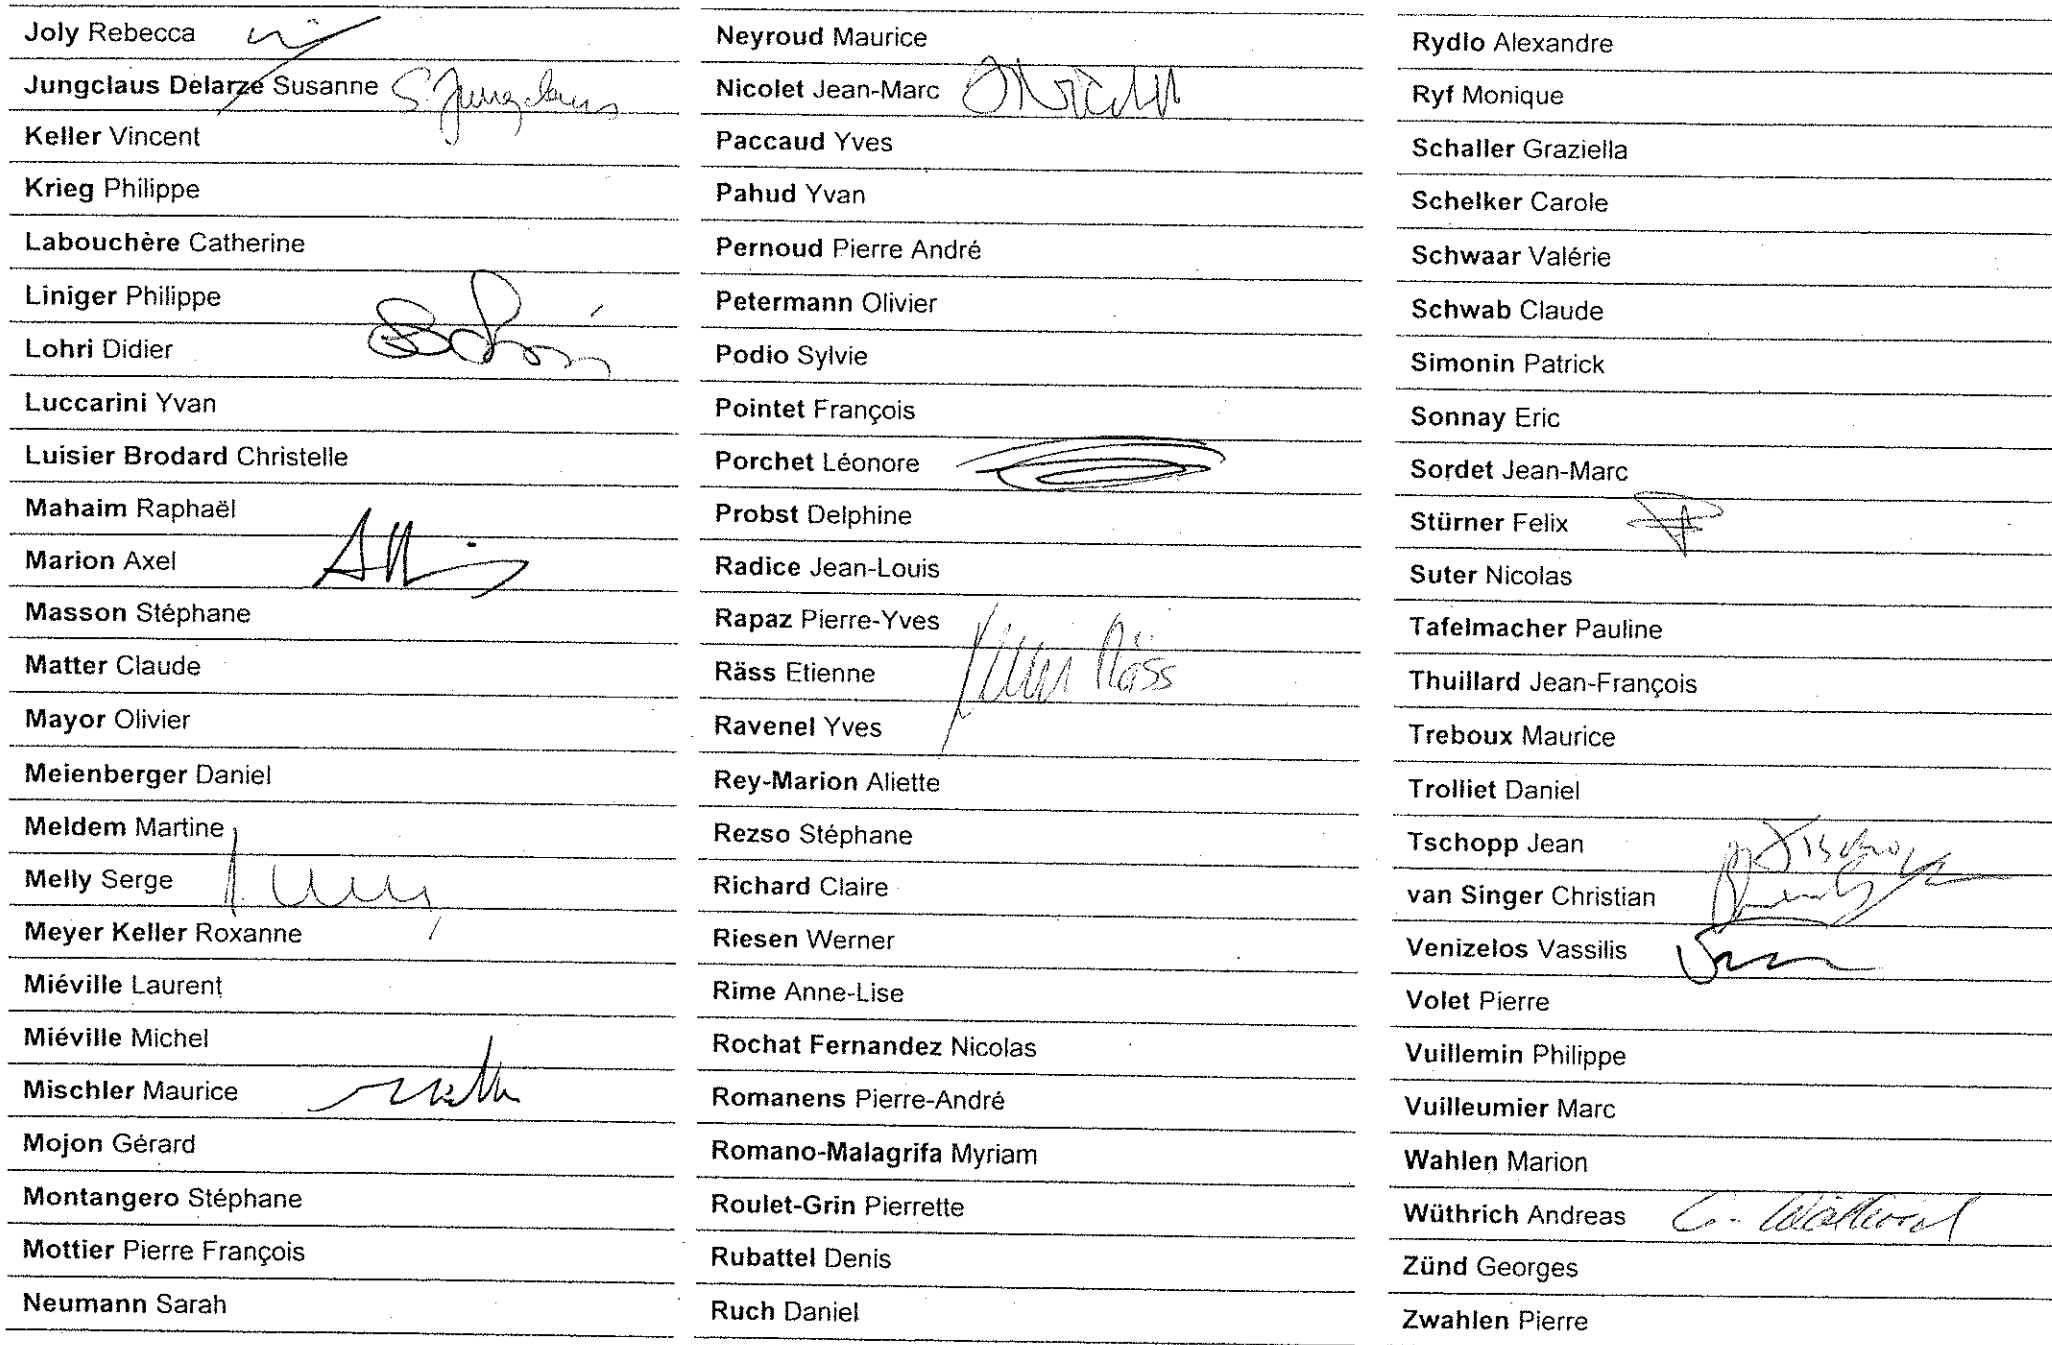 Joly Rebecca
Jungclaus Delarze Susanne S. Jungclaus
Keller Vincent
Krieg Philippe
Labouchère Catherine
Liniger Philippe
Lohri Didier
Luccarini Yvan
Luisier Brodard Christelle
Mahaim Raphaël
Marion Axel
Masson Stéphane
Matter Claude
Mayor Olivier
Meienberger Daniel
Meldem Martine
Melly Serge
Meyer Keller Roxanne
Miéville Laurent
Miéville Michel
Mischler Maurice
Mojon Gérard
Montangero Stéphane
Mottier Pierre François
Neumann Sarah
Neyroud Maurice
Nicolet Jean-Marc
Paccaud Yves
Pahud Yvan
Pernoud Pierre André
Petermann Olivier
Podio Sylvie
Pointet François
Porchet Léonore
Probst Delphine
Radice Jean-Louis
Rapaz Pierre-Yves
Räss Etienne Räss
Ravenel Yves
Rey-Marion Aliette
Rezso Stéphane
Richard Claire
Riesen Werner
Rime Anne-Lise
Rochat Fernandez Nicolas
Romanens Pierre-André
Romano-Malagrifa Myriam
Roulet-Grin Pierrette
Rubattel Denis
Ruch Daniel
Rydlo Alexandre
Ryf Monique
Schaller Graziella
Schelker Carole
Schwaar Valérie
Schwab Claude
Simonin Patrick
Sonnay Eric
Sordet Jean-Marc
Stürner Felix
Suter Nicolas
Tafelmacher Pauline
Thuillard Jean-François
Treboux Maurice
Trolliet Daniel
Tschopp Jean
van Singer Christian
Venizelos Vassilis
Volet Pierre
Vuillemin Philippe
Vuilleumier Marc
Wahlen Marion
Wüthrich Andreas
Zünd Georges
Zwahlen Pierre